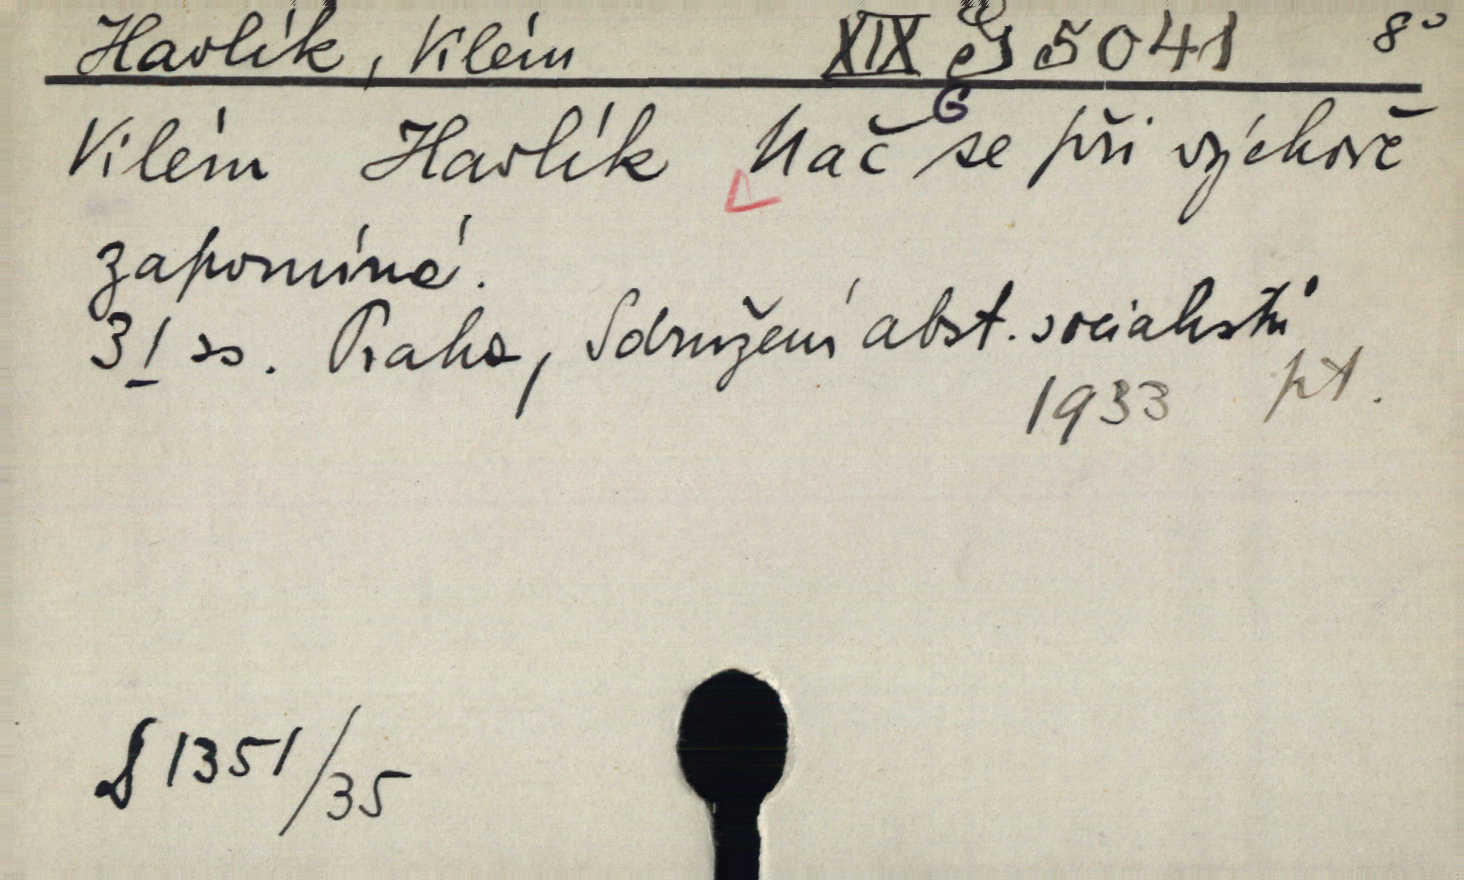 Havlík, Vilém XIX G 5041 8°
Vilém Havlík Nač se při výchově
zapomíná.
31 ss. Praha, Sdružení abst. socialistů
1933 pt.
1351/35